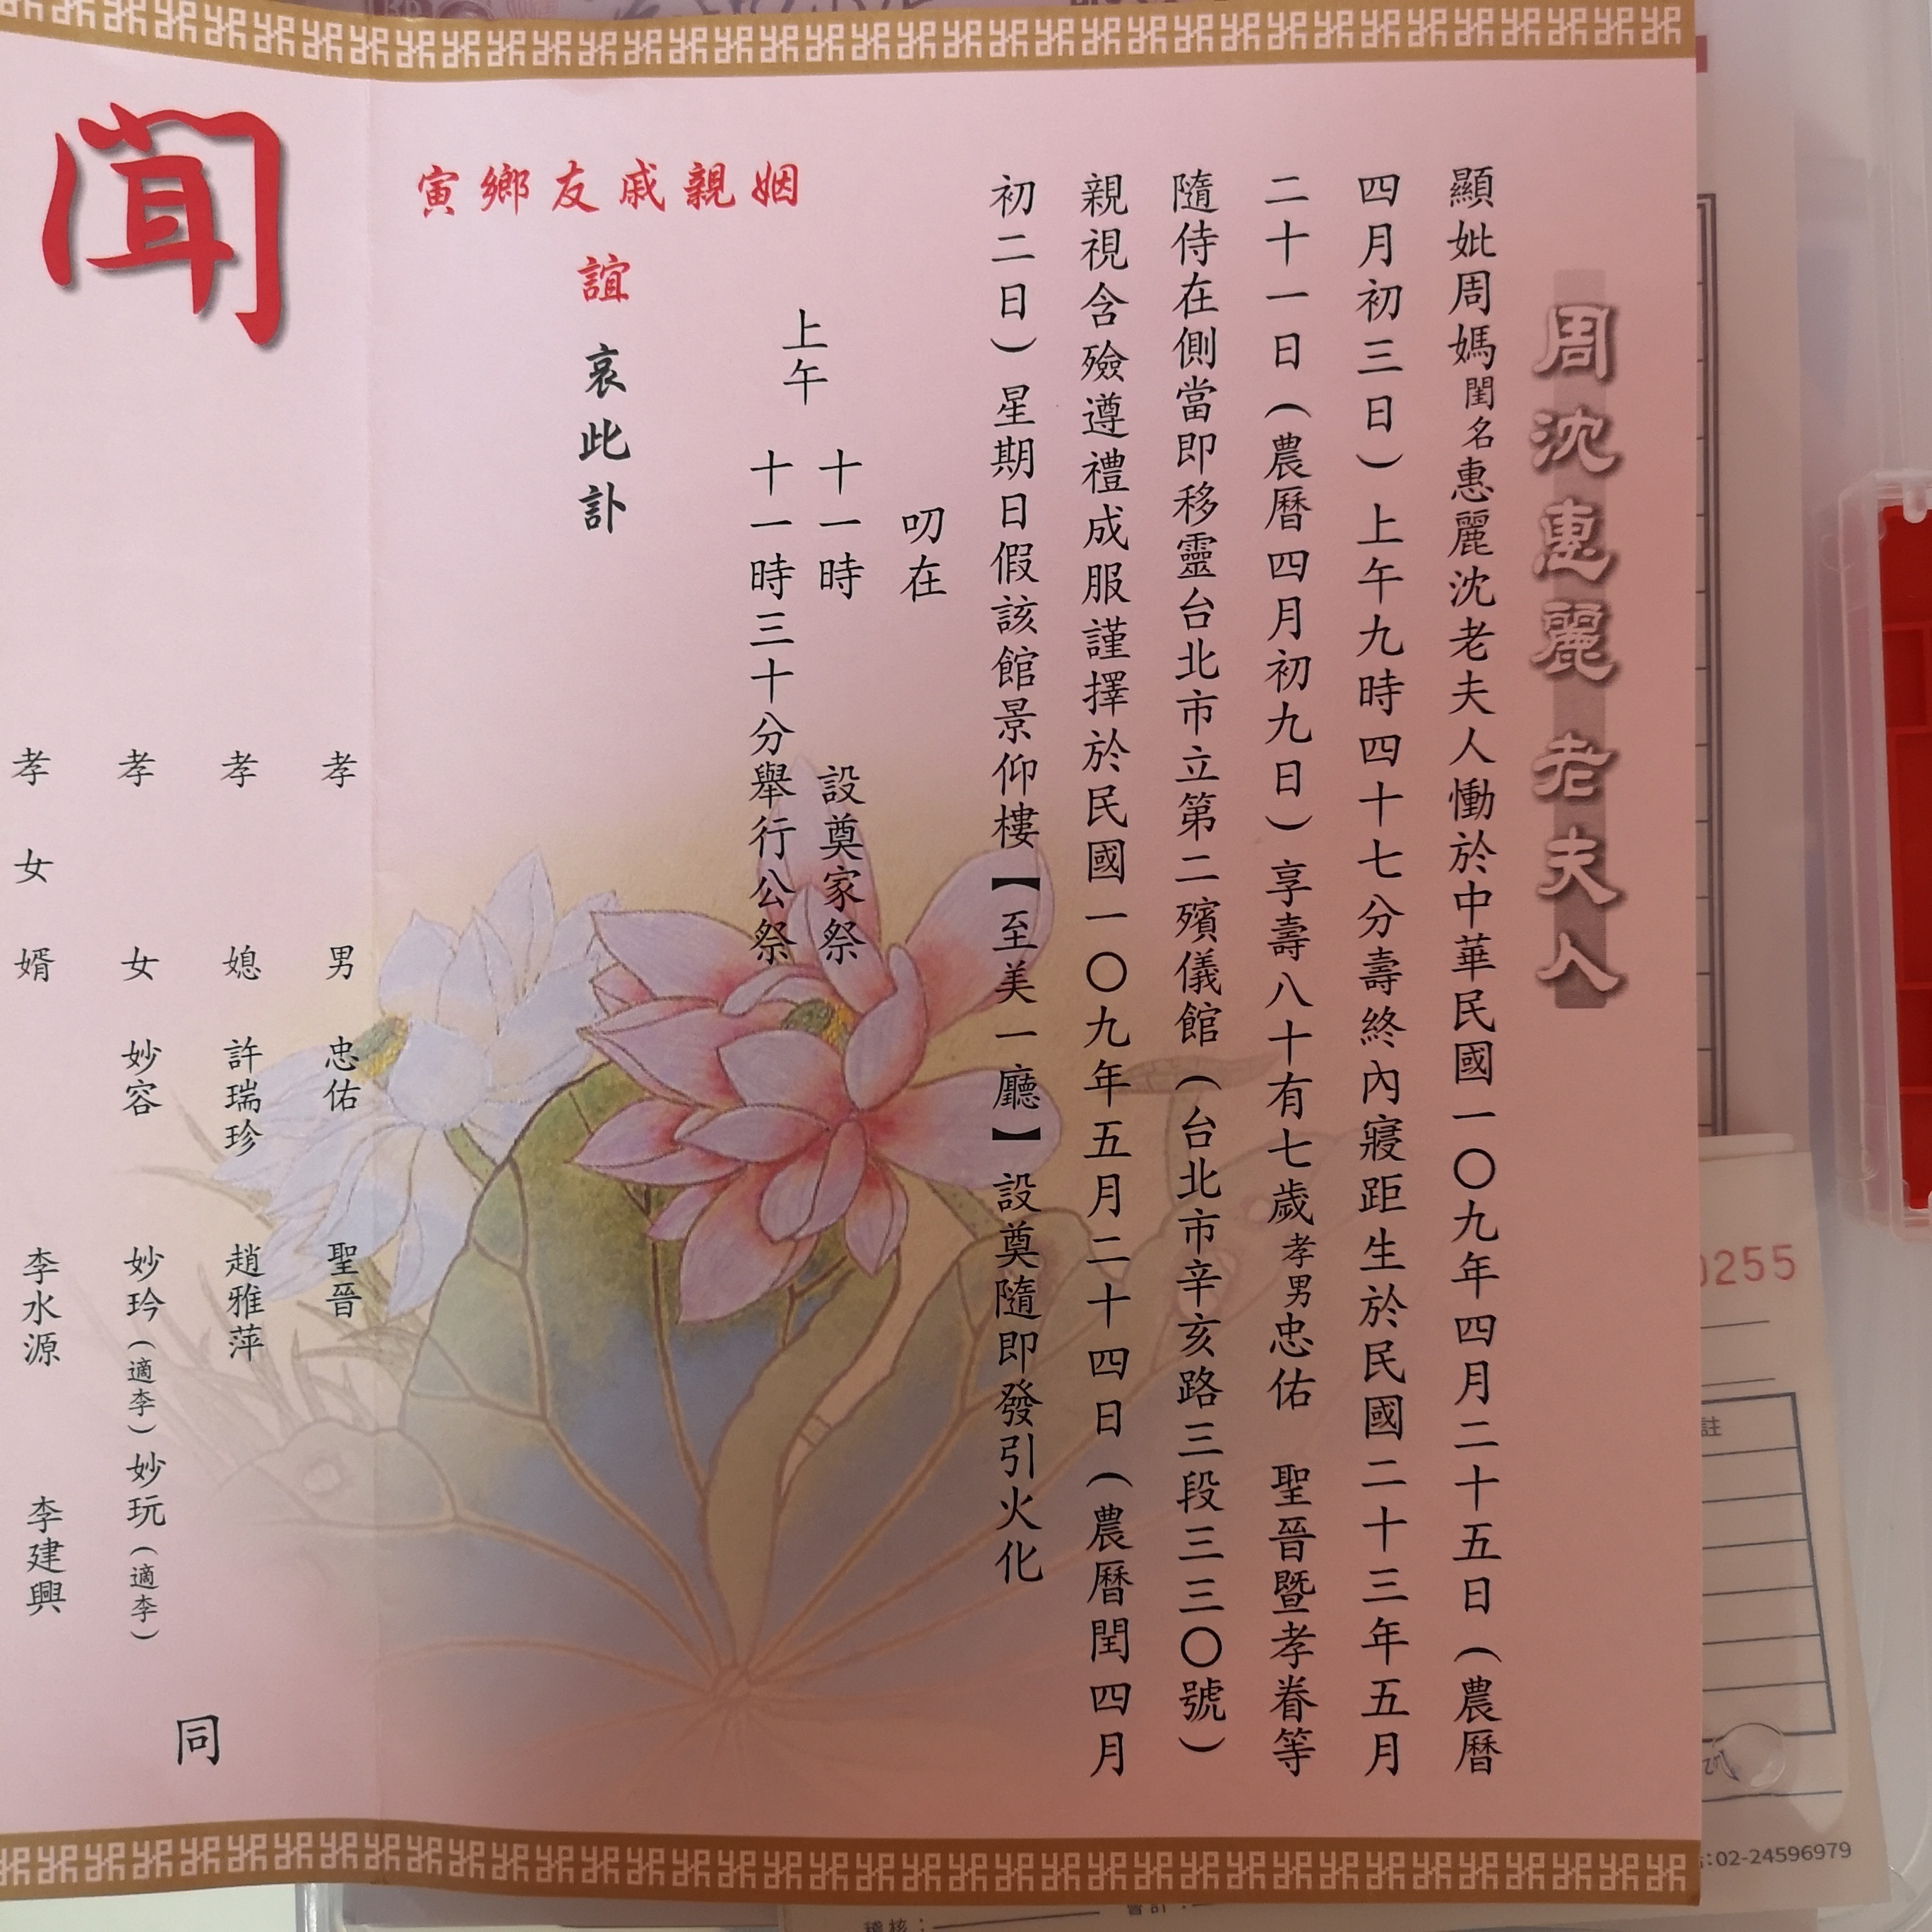 周沈惠麗老夫人
顯妣周媽閨名惠麗沈老夫人慟於中華民國一〇九年四月二十五日（農曆
四月初三日）上午九時四十七分壽終內寢距生於民國二十三年五月
二十一日（農曆四月初九日）享壽八十有七歲孝男忠佑 聖晉暨孝眷等
隨侍在側當即移靈台北市立第二殯儀館（台北市辛亥路三段三三〇號）
親視含殮遵禮成服謹擇於民國一〇九年五月二十四日（農曆閏四月
初二日）星期日假該館景仰樓【至美一廳】設奠隨即發引火化
叨在
上午
十一時 設奠家祭
十一時三十分舉行公祭
姻親戚友鄉寅
誼 哀此訃
聞
孝男 忠佑 聖晉
孝媳 許瑞珍 趙雅萍
孝女 妙容 妙玲（適李）妙玩（適李）
孝女婿 李水源 李建興
同
0255
註
:02-24596979
稽核：
會計：